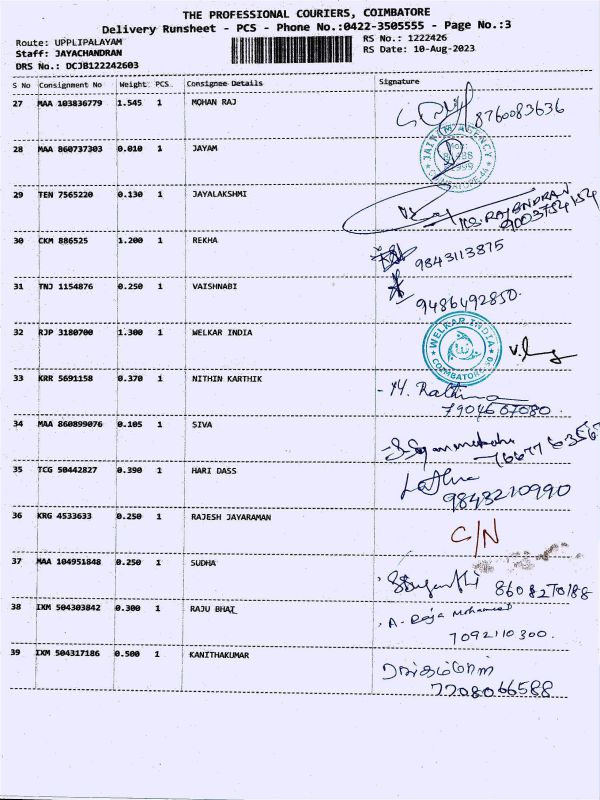 THE PROFESSIONAL COURIERS, COIMBATORE
Delivery Runsheet - PCS - Phone No.:0422-3505555 - Page No.:3
Route: UPPLIPALAYAM
Staff: JAYACHANDRAN
DRS No.: DCJB122242603
RS No.: 1222426
RS Date: 10-Aug-2023
S No Consignment No Weight PCS. Consignee Details Signature
27 MAA 103836779 1.545 1 MOHAN RAJ 8760083636
28 MAA 860737303 0.010 1 JAYAM
JAIN AGENCY
29 TEN 7565220 0.130 1 JAYALAKSHMI
30 CKM 886525 1.200 1 REKHA 9843113875
31 TNJ 1154876 0.250 1 VAISHNABI 9486492850.
32 RJP 3180700 1.300 1 WELKAR INDIA
WELKAR INDIA
33 KRR 5691158 0.370 1 NITHIN KARTHIK
34 MAA 860899076 0.105 1 SIVA
35 TCG 50442827 0.390 1 HARI DASS Lathra
9843210990
36 KRG 4533633 0.250 1 RAJESH JAYARAMAN C/N
37 MAA 104951848 0.250 1 SUDHA
38 IXM 504303842 0.300 1 RAJU BHAT A. Raja Mohamed
7092110300.
39 IXM 504317186 0.500 1 KANITHAKUMAR
7708066588